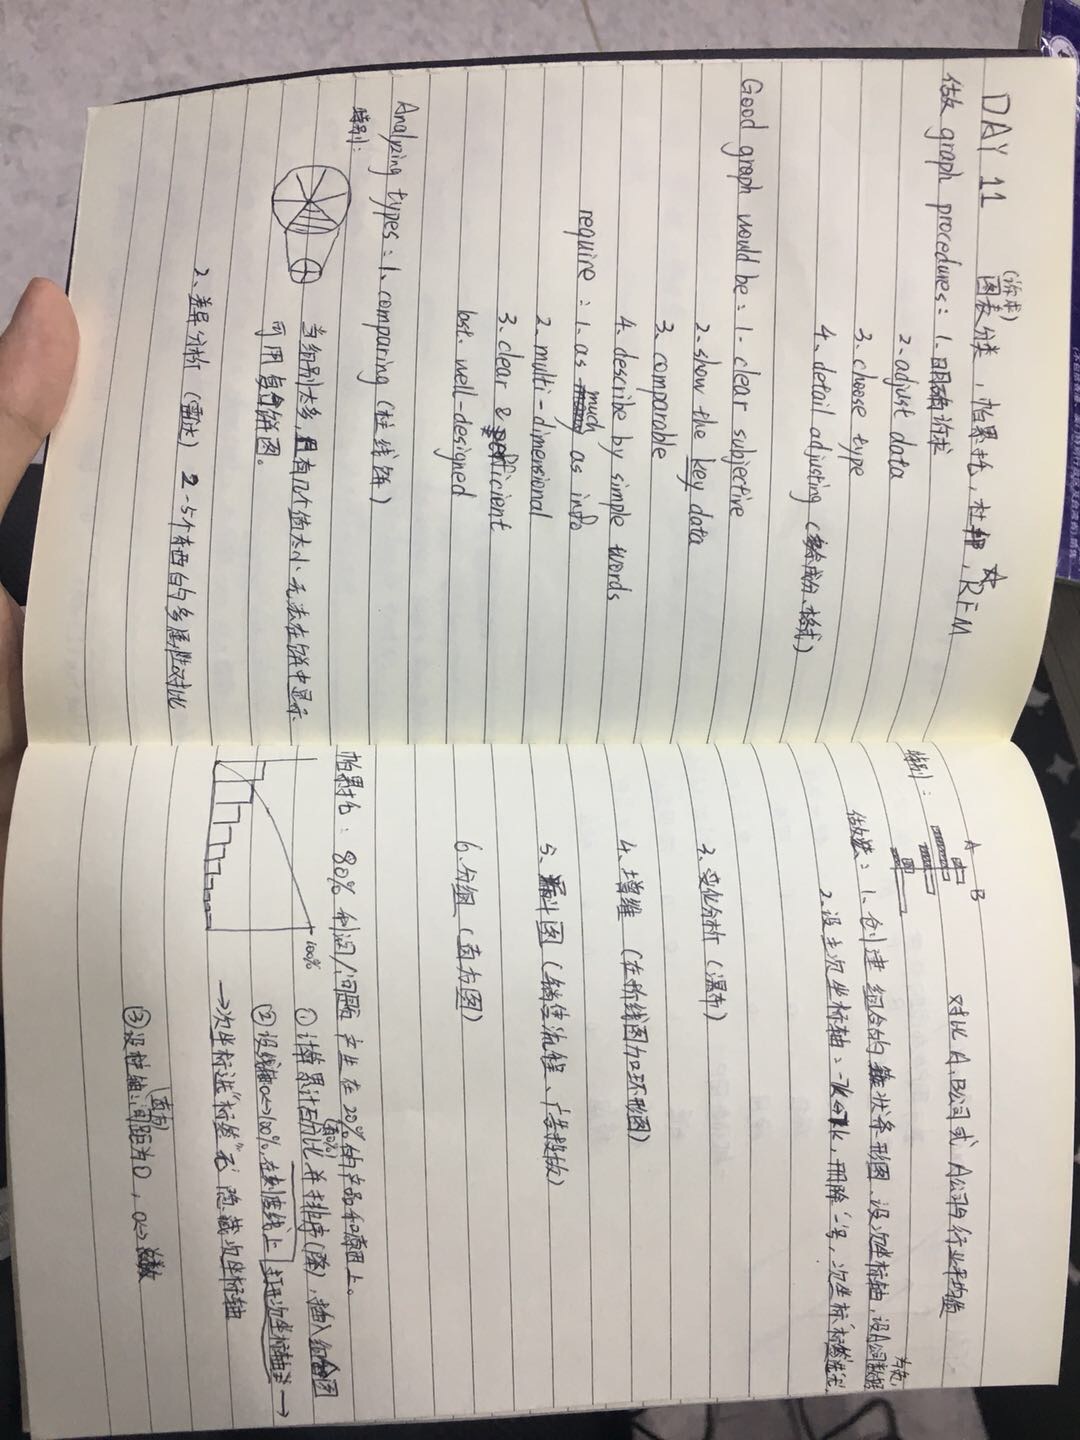 DAY 11 图表分类，帕累托，杜邦，☆RFM
(诉求)
做 graph procedures: 1. 明确诉求
2. adjust data
3. choose type
4. detail adjusting (成份、格式)
Good graph would be: 1. clear subjective
2. show the key data
3. comparable
4. describe by simple words
require: 1. as much as info
2. multi-dimensional
3. clear & efficient
last. well-designed
Analyzing types: 1. comparing (柱线饼)
特别:
当组别太多，且有几个值太小、无法在饼中显示
可用复合饼图。
2. 差异分析 (雷达) 2-5个东西的多属性对比
特别:
A B
对比A、B公司或A公司与行业平均值
做法: 1. 创建组合的簇状条形图、设次坐标轴，设A公司数据
为负，
2. 设主次坐标轴: -7k→7k，删除"-"号，次坐标"标签"选无
3. 变化分析 (瀑布)
4. 增维 (在折线图加环形图)
5. 漏斗图 (销售流程、广告投放)
6. 分组 (直方图)
帕累托: 80% 利润/问题 产生在20%的产品和原因上。
100%
① 计算累计占比并排序(降)，插入组合图
② 设线轴0→100%，在刻度线上，主开次坐标轴 →
→次坐标选"标签"无 隐藏次坐标轴
③ 设柱轴: 间距为0，0→总数